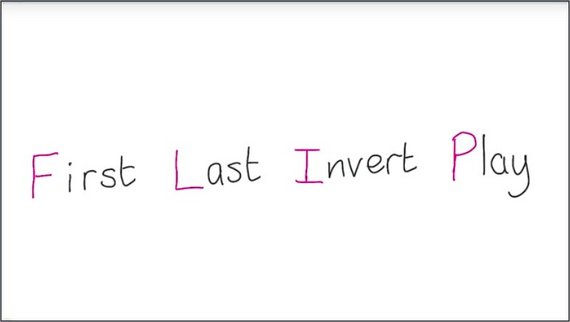 First Last Invert Play